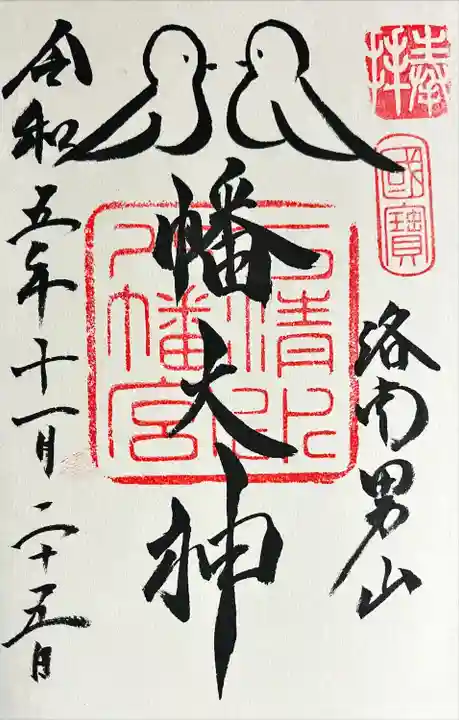 奉拝
國寶
洛南男山
八幡大神
石清水
八幡宮
令和五年十一月二十五日